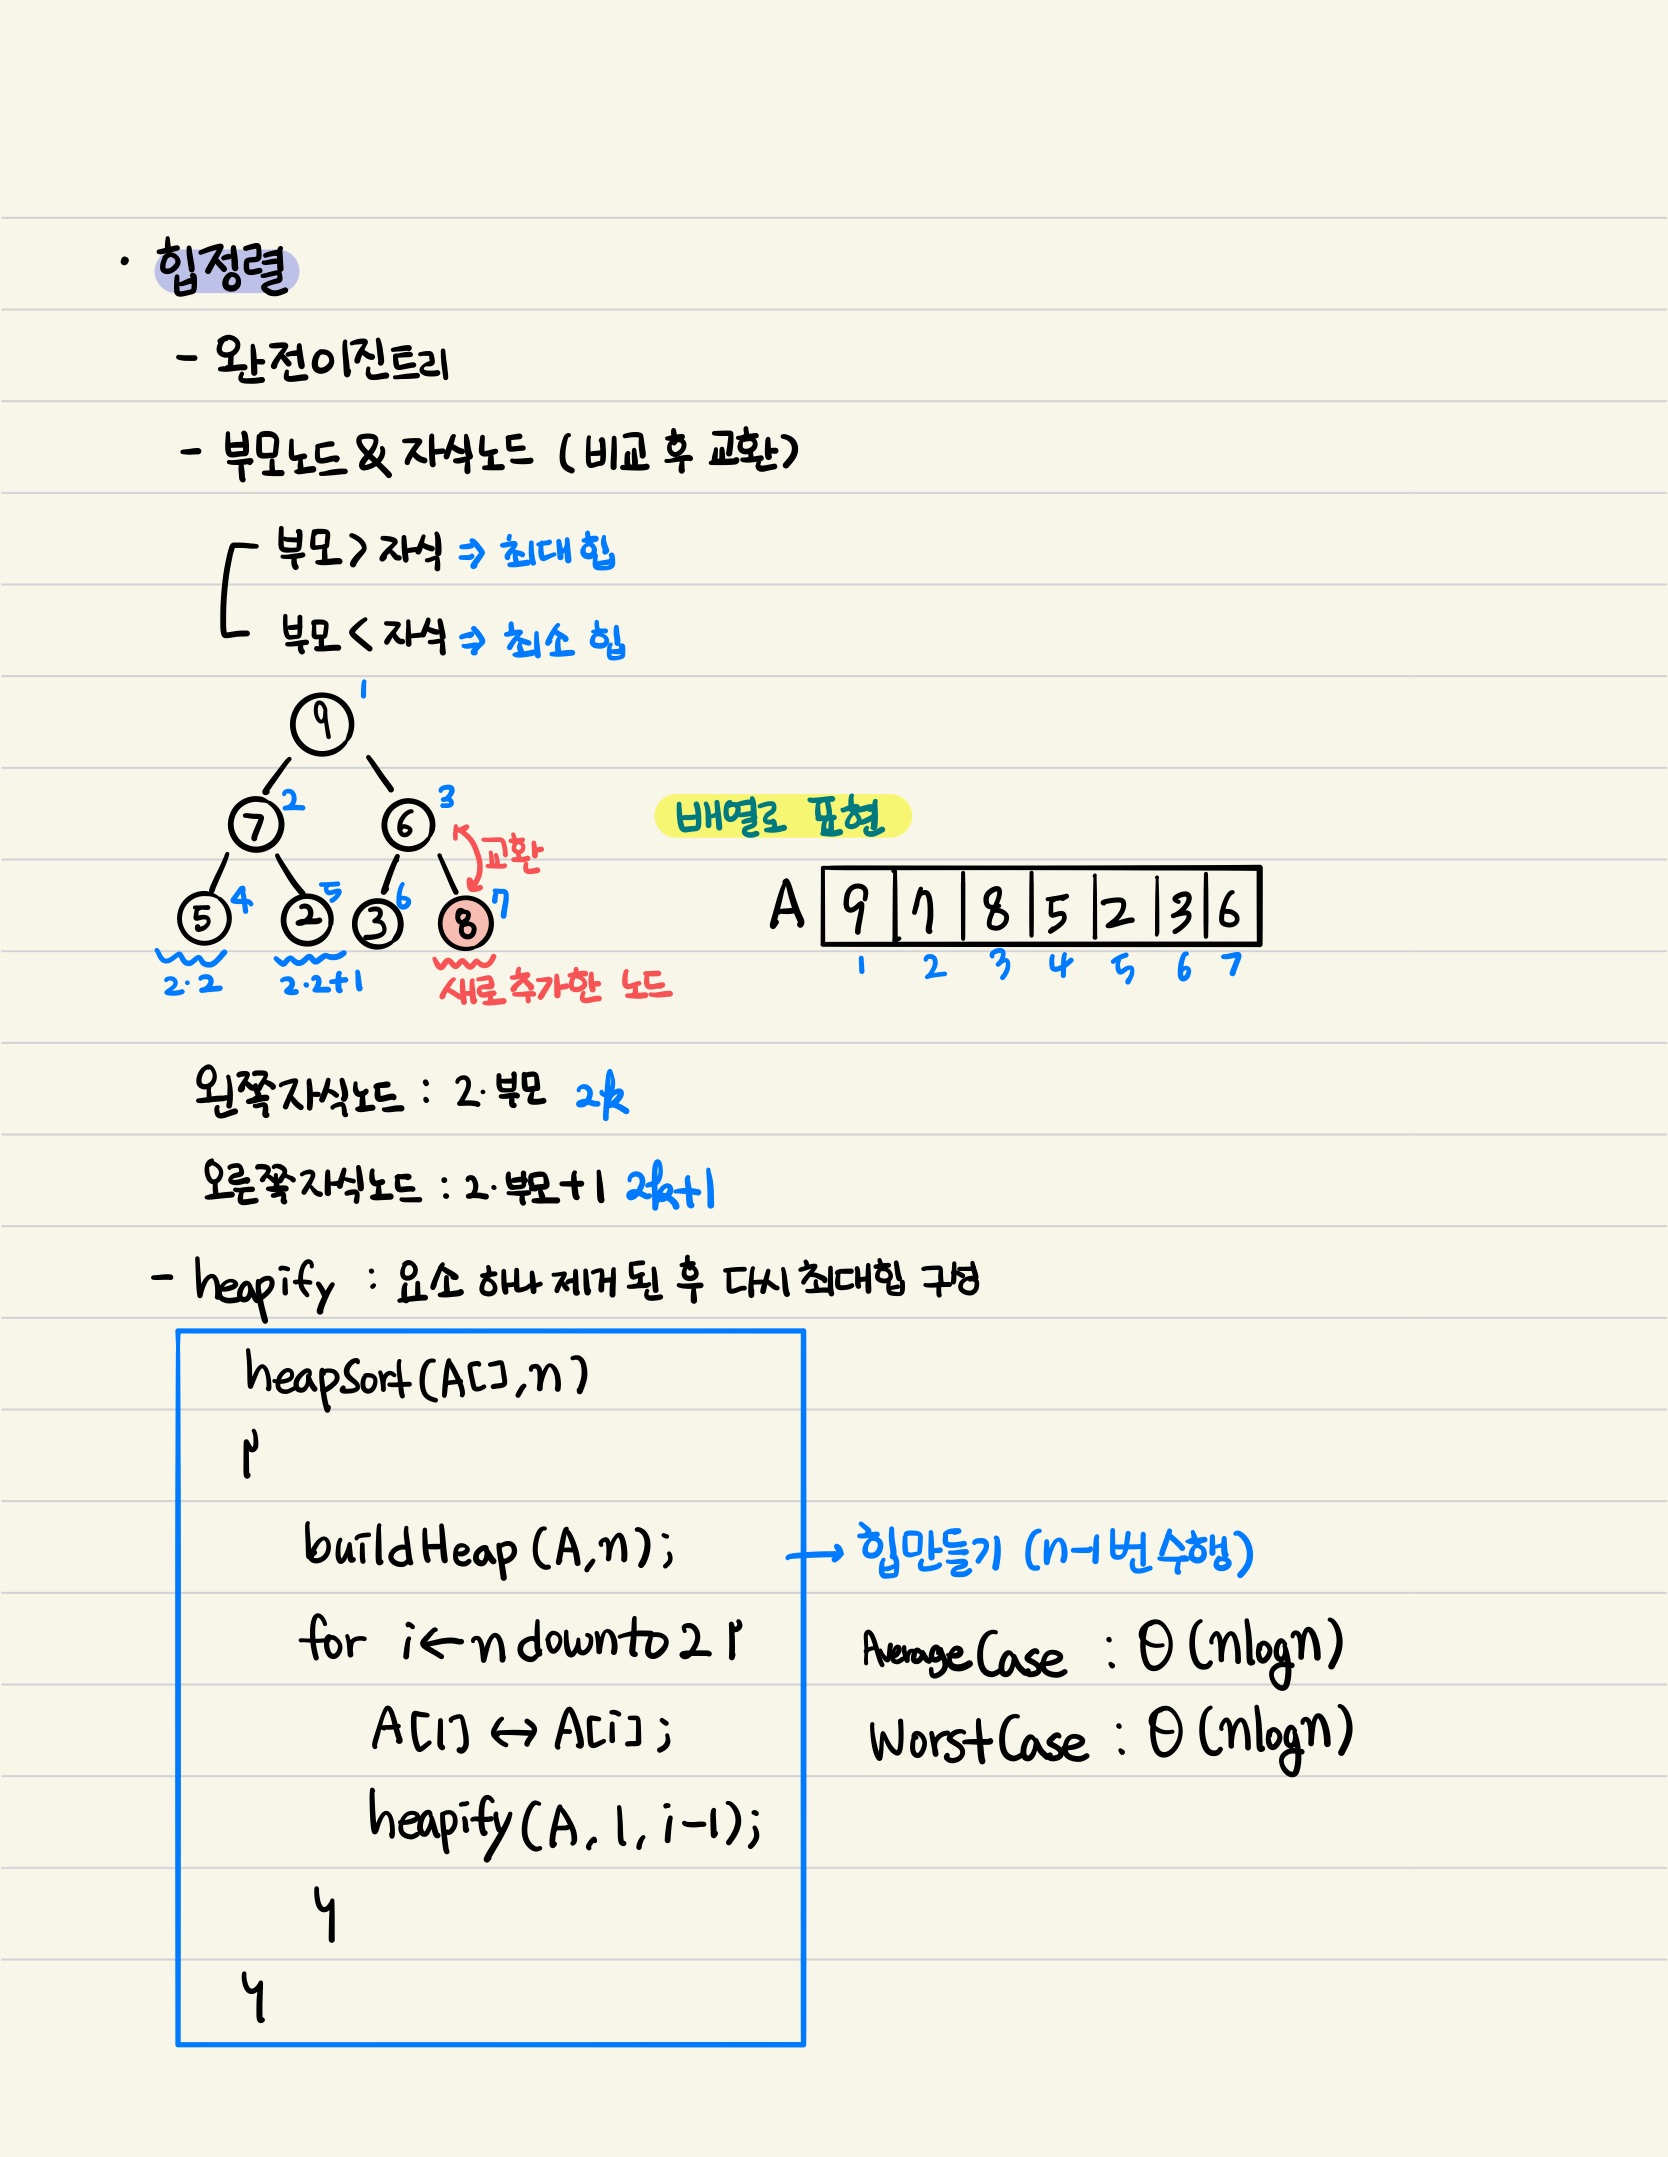 · 힙정렬
- 완전이진트리
- 부모노드 & 자식노드 (비교 후 교환)
부모 > 자식 ⇒ 최대 힙
부모 < 자식 ⇒ 최소 힙
9 1
7 2 6 3
교환
5 4 2 5 3 6 8 7
2·2 2·2+1 새로 추가한 노드
배열로 표현
A 9 7 8 5 2 3 6
1 2 3 4 5 6 7
왼쪽자식노드 : 2·부모 2k
오른쪽자식노드 : 2·부모+1 2k+1
- heapify : 요소 하나 제거 된 후 다시 최대힙 구성
heapSort(A[],n)
{
buildHeap(A,n); → 힙만들기 (n-1번 수행)
for i←n downto 2 {
A[1] ↔ A[i];
heapify(A, 1, i-1);
}
}
AverageCase : Θ(nlogn)
WorstCase : Θ(nlogn)